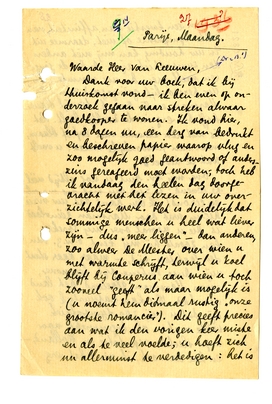 Parijs, Maandag.
Waarde Heer van Leeuwen,
Dank voor uw boek, dat ik bij
thuiskomst vond – ik ben even op on-
derzoek gegaan naar streken alwaar
goedkooper te wonen. Ik vond hier,
na 8 dagen nu, een berg van bedrukt
en beschreven papier waarop vlug en
zoo mogelijk goed geantwoord of anders-
zins gereageerd moet worden; toch heb
ik vandaag den heelen dag doorge-
bracht met het lezen in uw over-
zichtelijk werk. Het is duidelijk dat
sommige menschen u heel wat liever
zijn – dus "meer liggen" – dan anderen,
zoo alweer De Meester, over wien u
met warmte schrijft, terwijl u koel
blijft bij Couperus aan wien u toch
zooveel "geeft" als maar mogelijk is
(u noemt hem ditmaal rustig "onze
grootste romancier"). Dit geeft precies
aan wat ik den vorigen keer miste
en als de veel voelde; u hoeft zich
nu allerminst te verdedigen: het is